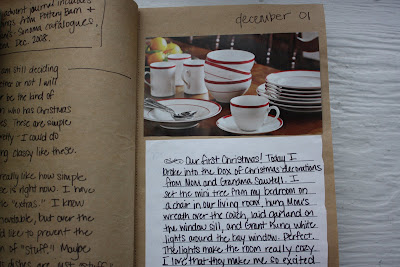 journal includes
from Pottery Barn +
Sonoma catalogues.
Dec. 2008.
am still deciding
or not I will
be the kind of
who has Christmas
These are simple
I could do
classy like these.
really like how simple
is right now. I have
"extras." I know
but over the
like to prevent the
of "stuff." Maybe
dishes are just
december 01
Our first Christmas! Today I
broke into the box of Christmas decorations
from Mom and Grandma Sawtell. I
set the mini tree from my bedroom on
a chair in our living room, hung Mom's
wreath over the couch, laid garland on
the window sill, and Grant hung white
lights around the bay window. Perfect.
The lights make the room really cozy.
I love that they make me so excited